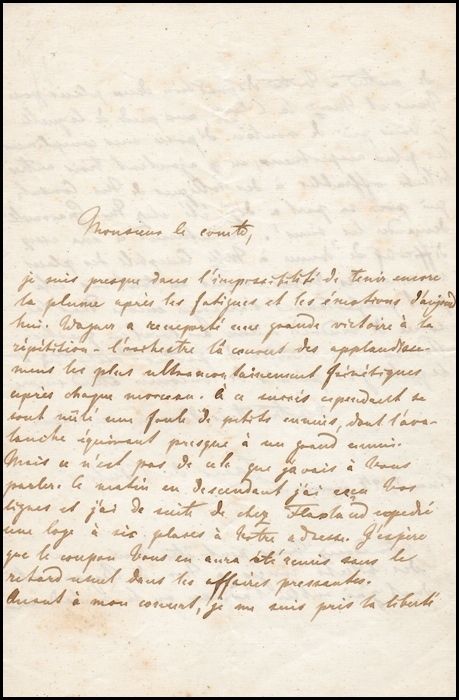 Monsieur le comte,
je suis presque dans l'impossibilité de tenir encore
la plume après les fatigues et les émotions d'aujourd
hui. Wagner a remporté une grande victoire à la
répétition - l'orchestre l'a couvert des applaudisse-
mens les plus ultramontainement frénétiques
après chaque morceau. À ce succès cependant se
sont mêlé une foule de petits ennuis, dont l'ava-
lanche équivaut presque à un grand ennui.
Mais ce n'est pas de cela que j'avais à Vous
parler. Le matin en descendant j'ai reçu Vos
lignes et j'ai de suite de chez Flaxland expedié
une loge à six places à Votre adresse. J'espère
que le coupon Vous en aura été remis sans le
retard usuel dans les affaires pressantes.
Quant à mon concert, je me suis pris la liberté